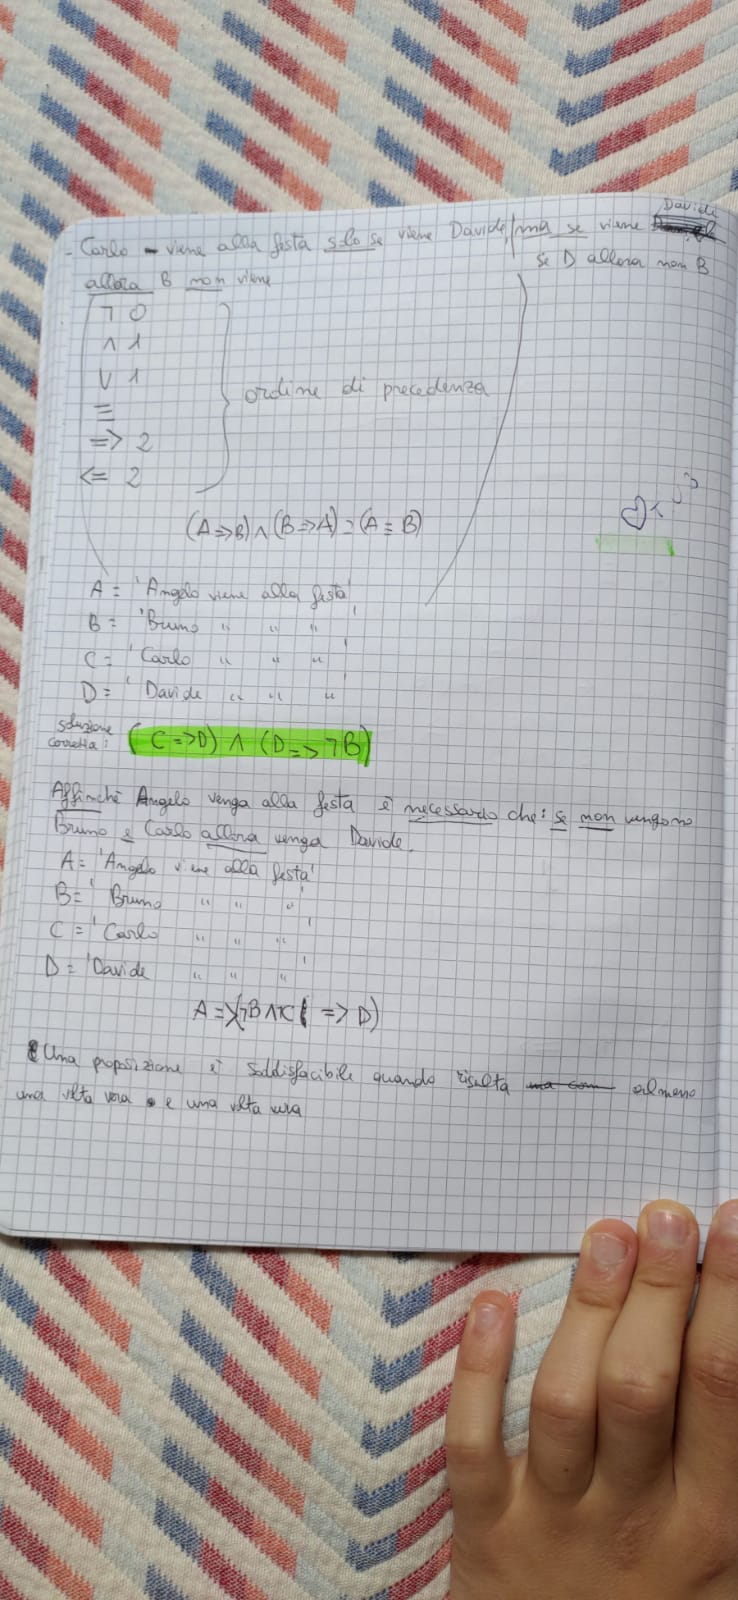 - Carlo - viene alla festa solo se viene Davide, ma se viene Davide
allora B non viene
se D allora non B
¬ 0
∧ 1
∨ 1
≡
=> 2
<= 2
ordine di precedenza
(A=>B)∧(B=>A)=(A≡B)
A = 'Angelo viene alla festa'
B = 'Bruno " " "'
C = 'Carlo " " "'
D = 'Davide " " "'
soluzione
corretta: (C=>D) ∧ (D=>¬B)
Affinché Angelo venga alla festa è necessario che: se non vengono
Bruno e Carlo allora venga Davide.
A = 'Angelo viene alla festa'
B = 'Bruno " " "'
C = 'Carlo " " "'
D = 'Davide " " "'
A=>(¬B∧¬C => D)
Una proposizione è soddisfacibile quando risulta almeno
una volta vera e una volta vera